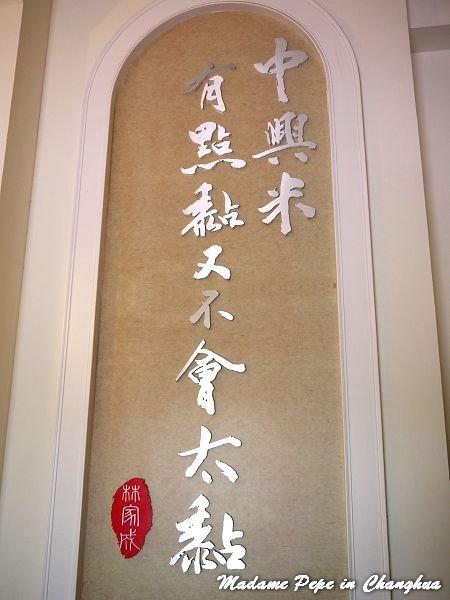 中興米
有點黏又不會太黏
林家成
Madame Pepe in Changhua